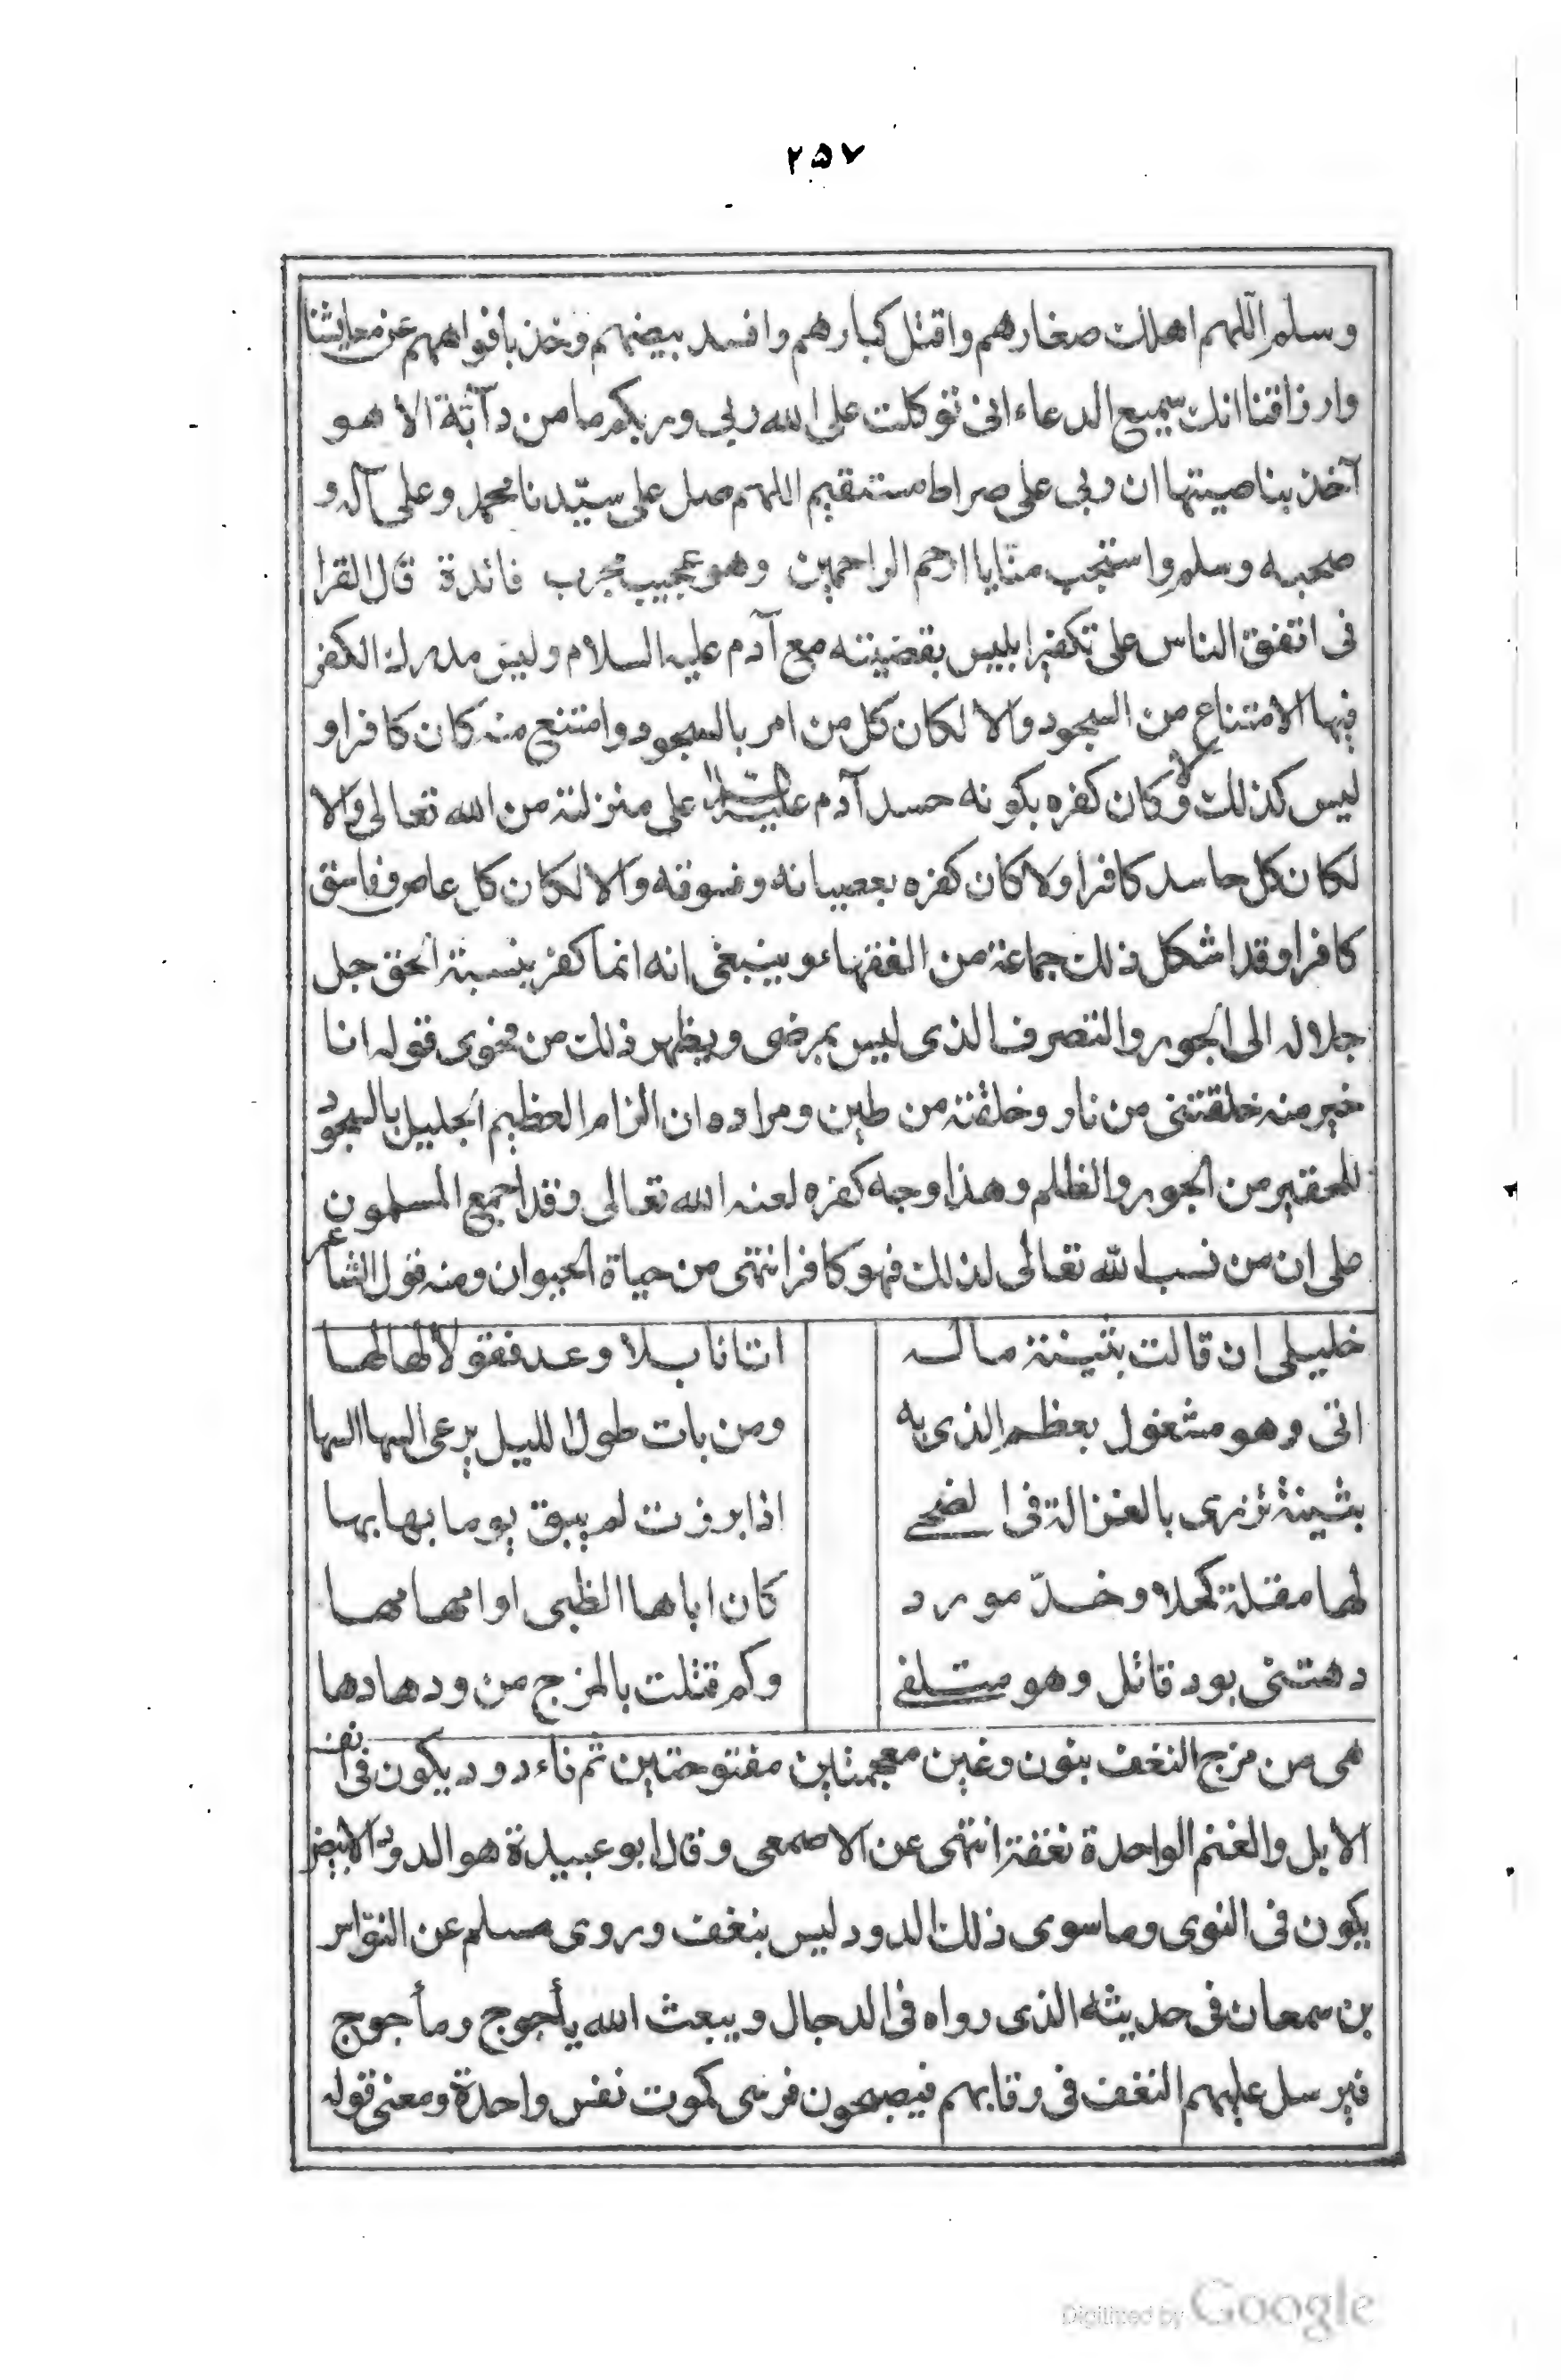 ٢٥٧
وسلم اللّهم اهلك صغارهم واقتل كبارهم وافسد بيضهم وخذ بافواههم عن معايشنا
وارزاقنا انك سميع الدعاء انى توكلت على الله ربى وربكم ما من دآبّة الا هو
آخذ بناصيتها ان ربى على صراط مستقيم اللهم صل على سيّدنا محمد وعلى آله و
صحبه وسلم واستجب منّا يا ارحم الراحمين وهو عجيب مجرب فائدة قال القرا
فى اتفق الناس على تكفير ابليس بقضيته مع آدم عليه السلام وليس مدرك الكفر
فيها الامتناع من السجود والا لكان كل من امر بالسجود وامتنع منه كان كافرا و
ليس كذلك ولا كان كفره بكونه حسد آدم عليه السلام على منزلته من الله تعالى والا
لكان كل حاسد كافرا ولا كان كفره بعصيانه وفسوقه والا لكان كل عاص وفاسق
كافرا وقد اشكل ذلك جماعة من الفقهاء وينبغى انه انما كفر بنسبة الحق جل
جلاله الى الجور والتصرف الذى ليس بمرضى ويظهر ذلك من فحوى قوله انا
خير منه خلقتنى من نار وخلقته من طين ومراده ان الزام العظيم الجليل بالسجود
للحقير من الجور والظلم وهذا وجه كفره لعنه الله تعالى وقد اجمع المسلمون
على ان من نسب الله تعالى لذلك فهو كافر انتهى من حياة الحيوان ومنه قول الشاعر
خليلى ان قالت بثينة ماله اتانا بلا وعد فقولا لها لها
اتى وهو مشغول بعظم الذى به ومن بات طول الليل يرعى السها السها
بثينة تزرى بالغزالة فى الضحى اذا برزت لم يبق يوما بها بها
لها مقلة كحلا وخدّ مورد كان اباها الظبى او امها مها
دهتنى بود قاتل وهو متلفى وكم قتلت بالمزج من ودها دها
هى من مزج النغف بنون وغين معجمتين مفتوحتين ثم فاء دود يكون فى انف
الابل والغنم الواحدة نغفة انتهى عن الاصمعى وقال ابو عبيدة هو الدود الابيض
يكون فى النوى وما سوى ذلك الدود ليس بنغف وروى مسلم عن النوّاس
بن سمعان فى حديثه الذى رواه فى الدجال ويبعث الله يأجوج ومأجوج
فيرسل عليهم النغف فى رقابهم فيصبحون فرسى كموت نفس واحدة ومعنى قوله
Digitized by Google